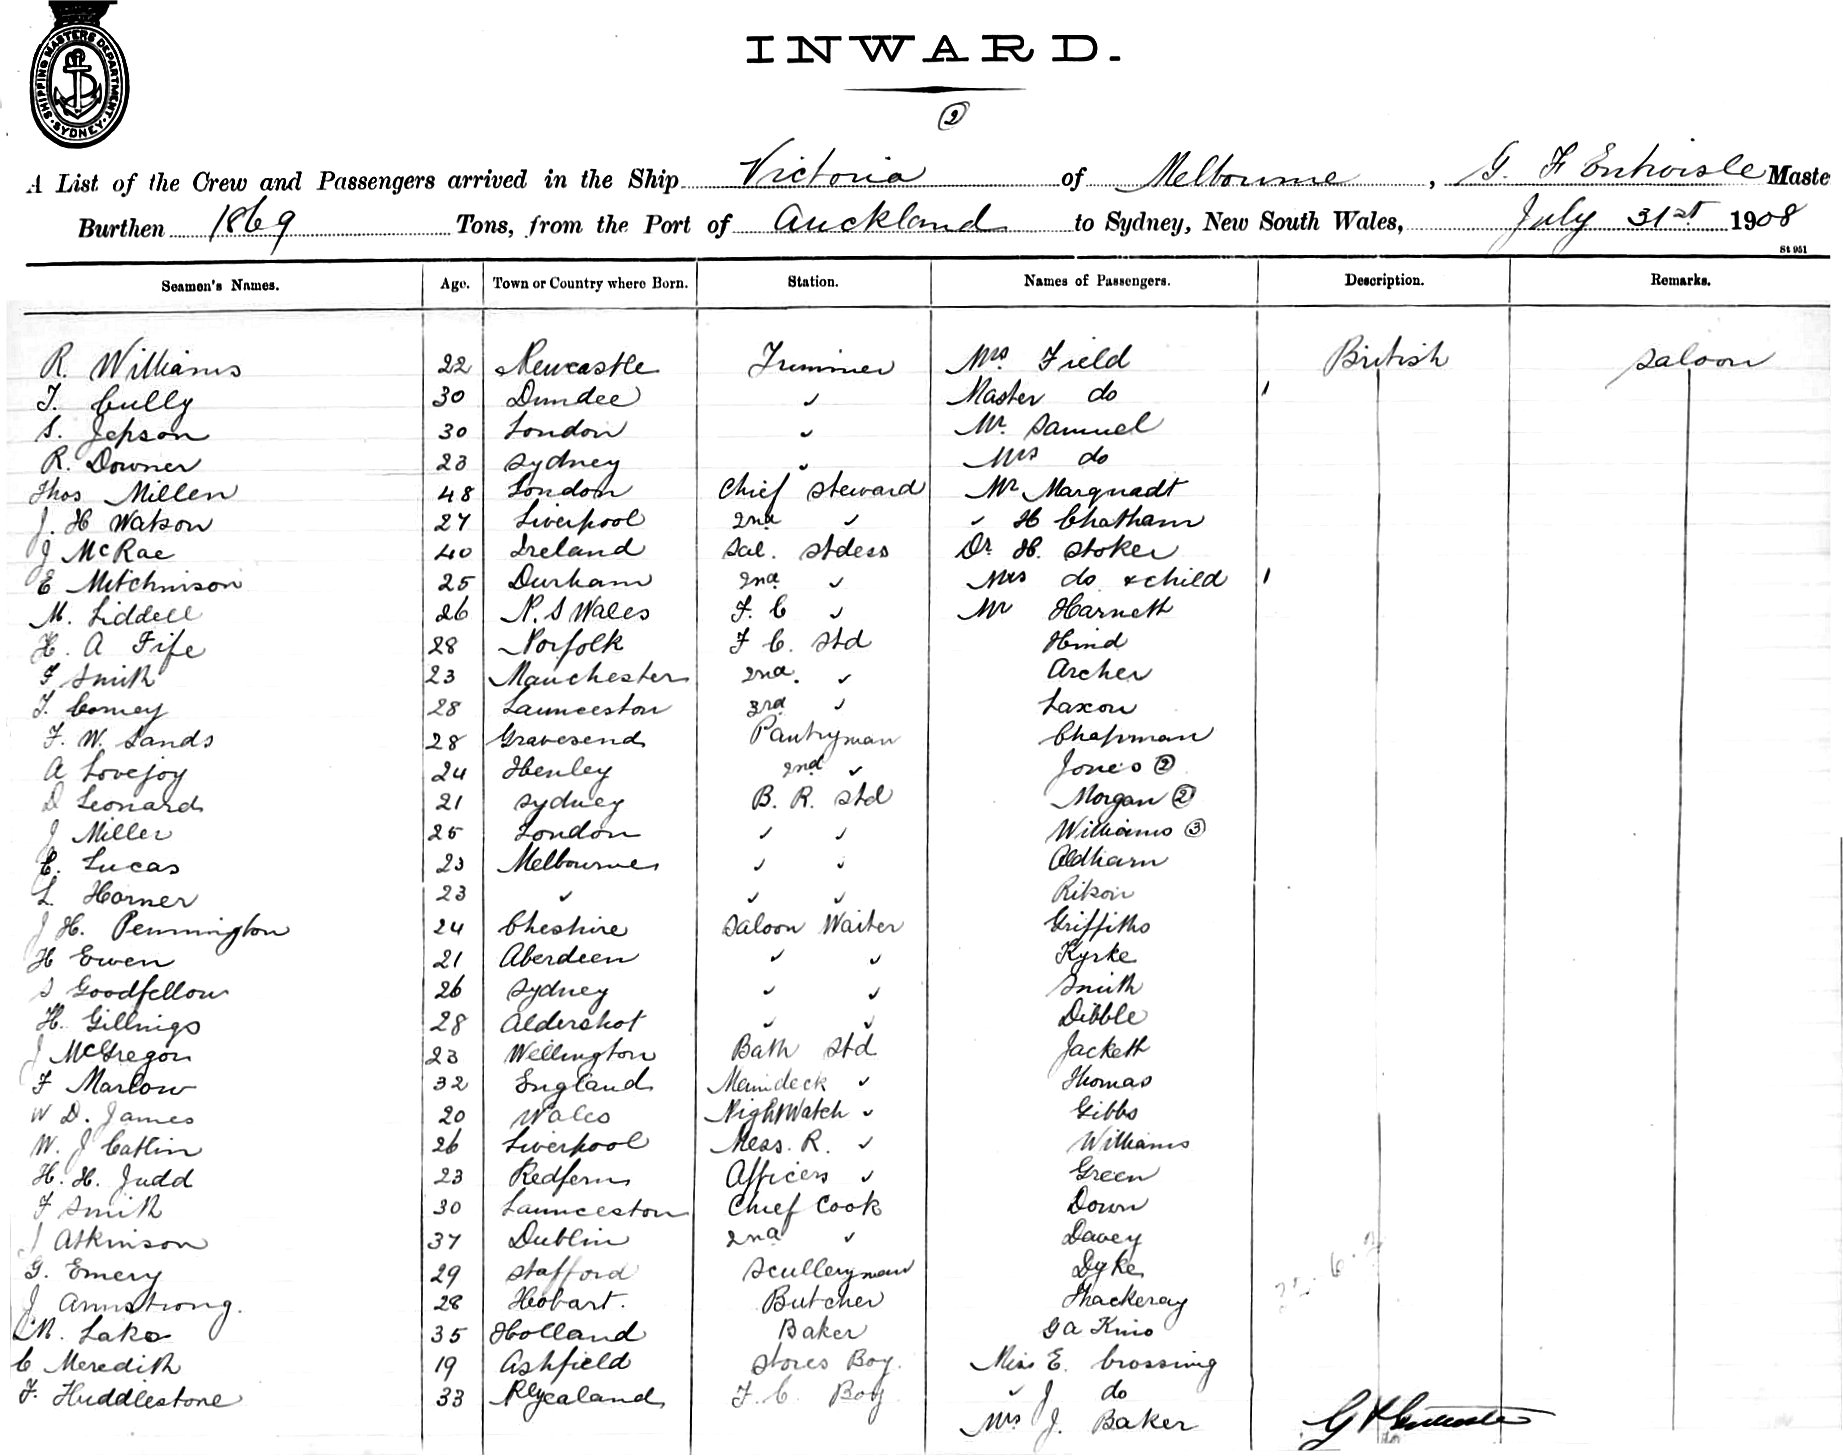 SHIPPING MASTERS DEPARTMENT. SYDNEY.
INWARD.
2
A List of the Crew and Passengers arrived in the Ship Victoria of Melbourne, G. F Entwisle Maste
Burthen 1869 Tons, from the Port of Auckland to Sydney, New South Wales, July 31st 1908
St 951
Seamen's Names. Age. Town or Country where Born. Station. Names of Passengers. Description. Remarks.
R. Williams 22 Newcastle Trimmer Mrs Field British Saloon
T. Cully 30 Dundee ✓ Master do 1
S. Jepson 30 London ✓ Mr. Samuel
R. Downer 23 Sydney ✓ Mrs do
Thos Millen 48 London Chief Steward Mr Marquadt
J. H Watson 27 Liverpool 2nd ✓ ✓ H Chatham
J McRae 40 Ireland Sal. Stdess Dr H. Stoker
E Mitchinson 25 Durham 2nd ✓ Mrs do & child 1
M. Liddell 26 N. S Wales F. C ✓ Mr Harnett
H. A Fife 28 Norfolk F C. Std Hind
F Smith 23 Manchester 2nd. ✓ Archer
T. Comey 28 Launceston 3rd ✓ Laxon
F. W. Sands 28 Gravesend Pantryman Chapman
A Lovejoy 24 Henley 2nd ✓ Jones 2
D Leonard 21 Sydney B. R. Std Morgan 2
J Miller 25 London ✓ ✓ Williams 3
C. Lucas 23 Melbourne ✓ ✓ Aldham
L. Horner 23 ✓ ✓ ✓ Ritson
J H. Pennington 24 Cheshire Saloon Waiter Griffiths
H Ewen 21 Aberdeen ✓ ✓ Kyrke
S Goodfellow 26 Sydney ✓ ✓ Smith
H. Gillings 28 Aldershot ✓ ✓ Dibble
J McGregor 23 Wellington Bath Std Jackett
F Marlow 32 England Maindeck ✓ Thomas
W D. James 20 Wales NightWatch ✓ Gibbs
W. J Catlin 26 Liverpool Mess. R. ✓ Williams
H. H. Judd 23 Redfern Officers ✓ Green
F Smith 30 Launceston Chief Cook Down
J Atkinson 37 Dublin 2nd ✓ Davey
G. Emery 29 Stafford Sculleryman Dyke
J Armstrong. 28 Hobart. Butcher Thackeray
M. Lako 35 Holland Baker G A King
C Meredith 19 Ashfield Stores Boy. Miss E. Crossing
F. Huddlestone 33 F. C. Boy ✓ J do
Mrs J. Baker